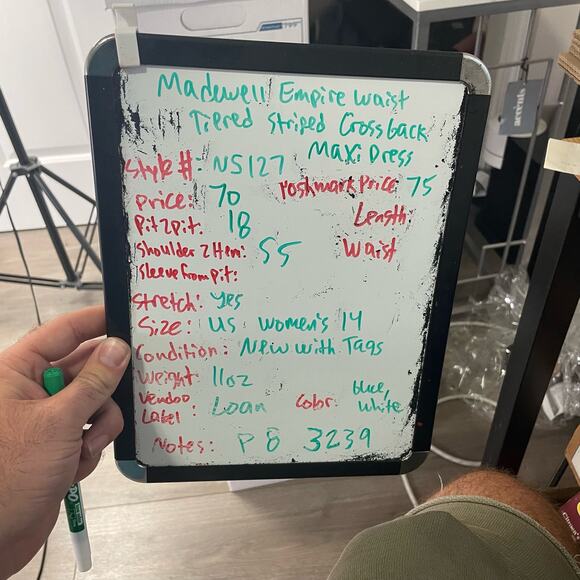 Madewell Empire Waist
Tiered Striped Crossback
Maxi Dress
Style #: NS127
price: 70
Poshmark Price: 75
Pit 2 pit: 18
Length:
Shoulder 2 Hem: 55
Waist
Sleeve from pit:
Stretch: Yes
Size: US women's 14
Condition: New with Tags
Weight 11oz
Vendoo Label: Loan
Color blue, white
Notes: P8 3239
accents
EXPO